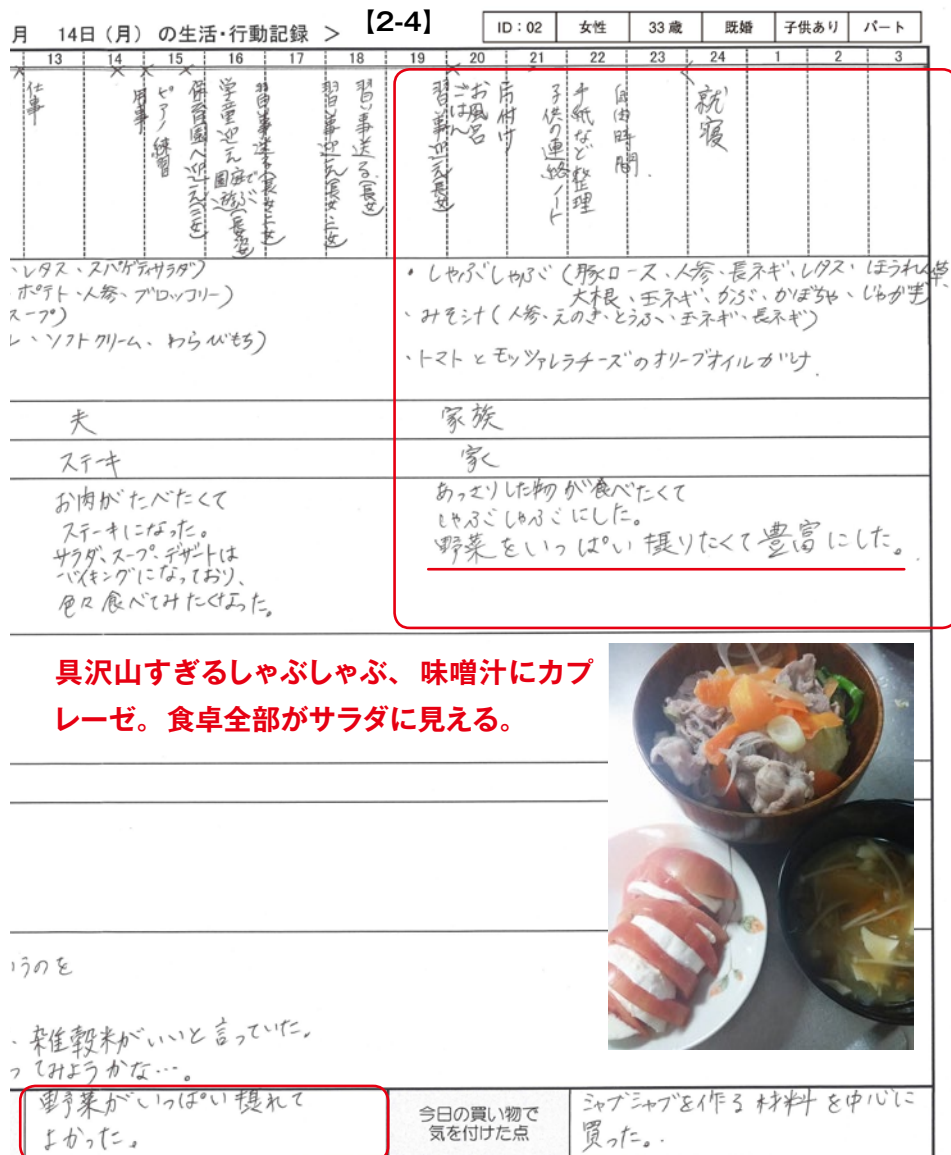 月 14日(月) の生活・行動記録 >
【2-4】
ID:02 女性 33歳 既婚 子供あり パート
13 14 15 16 17 18 19 20 21 22 23 24 1 2 3
仕事
用事
ピアノ練習
保育園へ迎え(三女)
学童迎え
園庭で遊ぶ
習い事迎え(長女・二女)
習い事送る(長女)
習い事迎え(長女)
ごはん
お風呂
片付け
子供の連絡ノート
手紙など整理
自由時間
就寝
・レタス・スパゲティサラダ)
ポテト・人参・ブロッコリー)
スープ)
レ・ソフトクリーム、わらびもち)
・しゃぶしゃぶ(豚ロース、人参・長ネギ、レタス・ほうれん草、
大根、玉ネギ、かぶ、かぼちゃ、じゃが芋)
・みそ汁(人参、えのき、とうふ、玉ネギ、長ネギ)
・トマトとモッツァレラチーズのオリーブオイルがけ
夫
家族
ステーキ
家
お肉がたべたくて
ステーキになった。
サラダ、スープ、デザートは
バイキングになっており、
色々食べてみたくなった。
あっさりした物が食べたくて
しゃぶしゃぶにした。
野菜をいっぱい摂りたくて豊富にした。
具沢山すぎるしゃぶしゃぶ、味噌汁にカプ
レーゼ。食卓全部がサラダに見える。
いうのを
、雑穀米がいいと言っていた。
ってみようかな…。
野菜がいっぱい摂れて
よかった。
今日の買い物で
気を付けた点
シャブシャブを作る材料を中心に
買った。